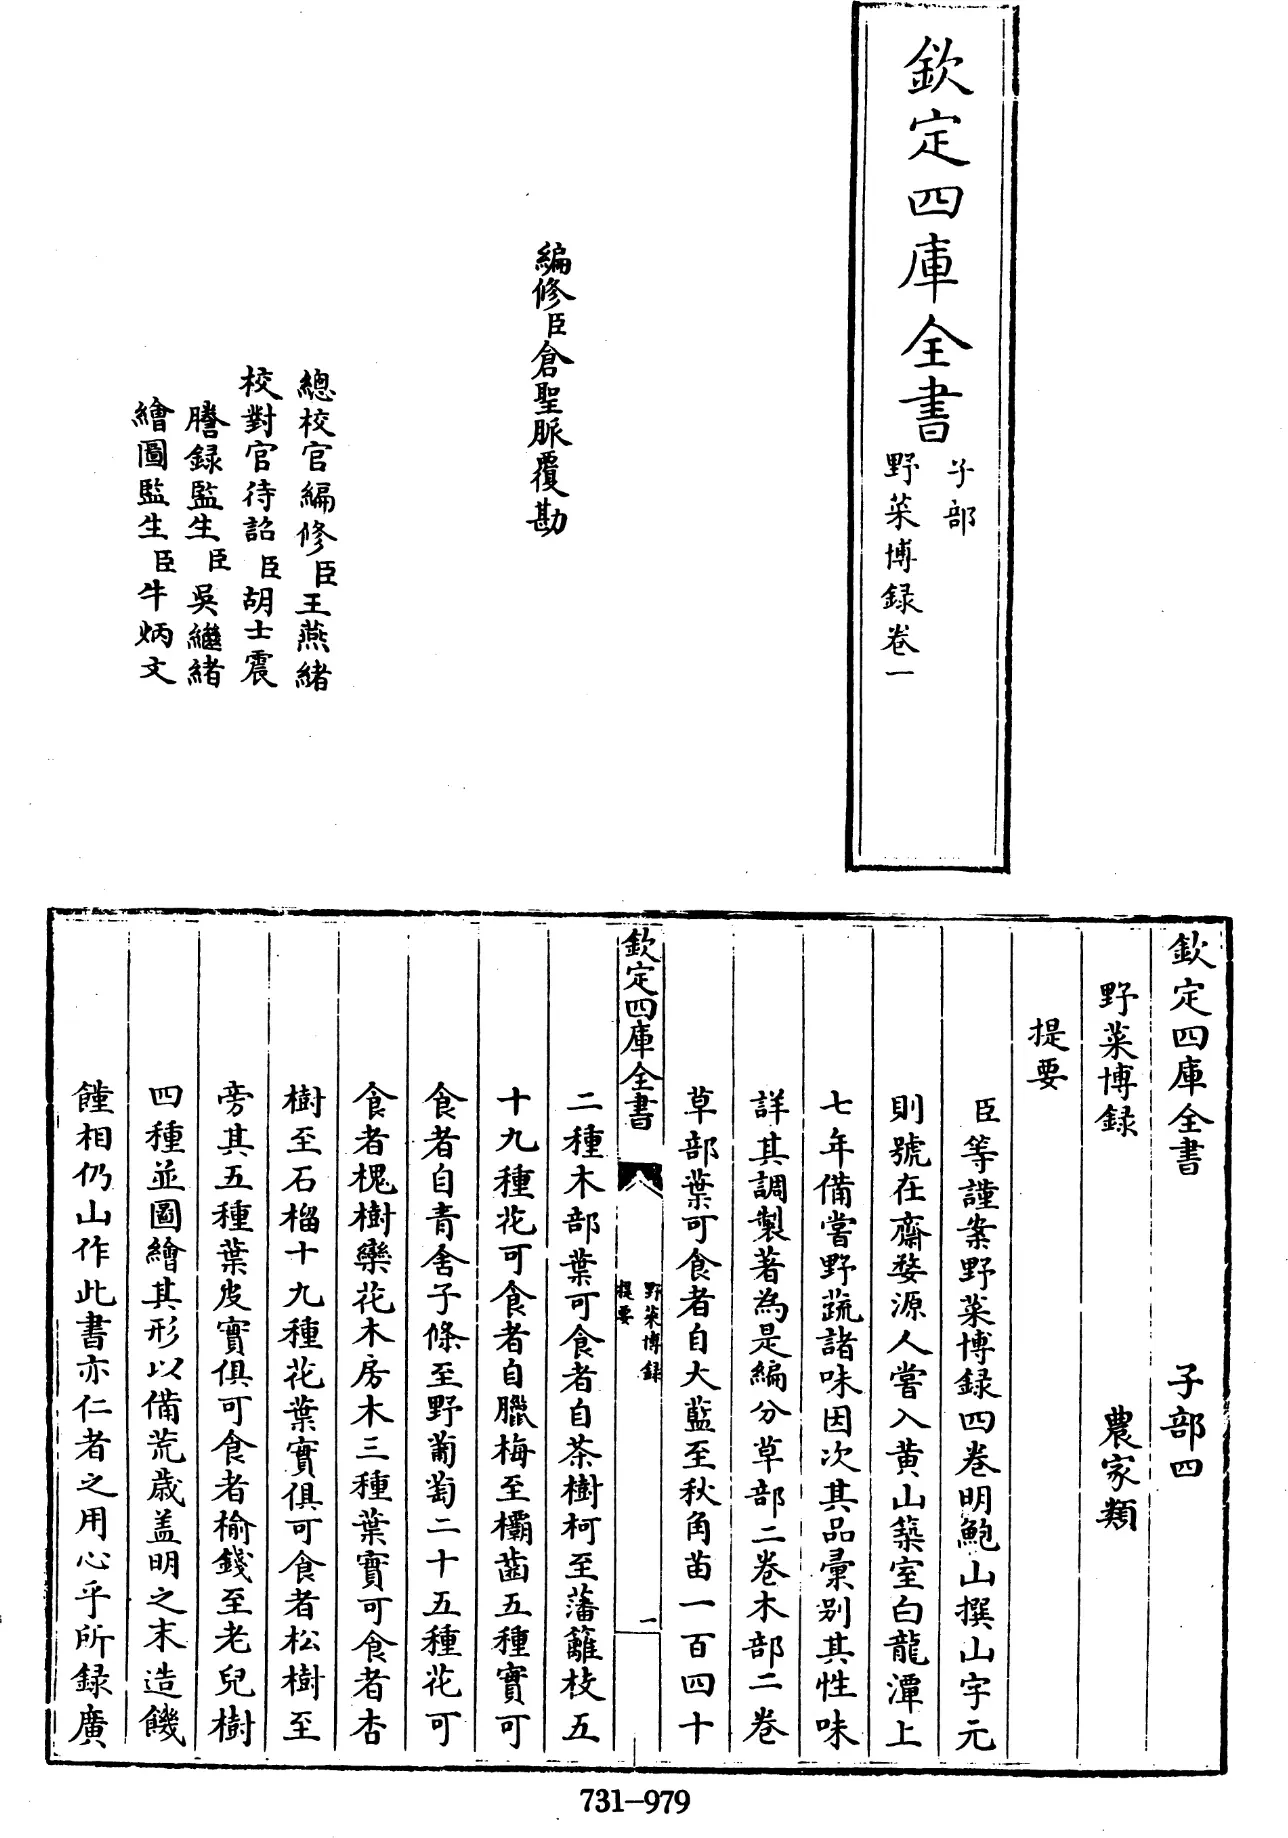 欽定四庫全書
子部
野菜博録卷一
編修臣倉聖脈覆勘
總校官編修臣王燕緒
校對官待詔臣胡士震
謄録監生臣吳繼緒
繪圖監生臣牛炳文
欽定四庫全書 子部四
野菜博録 農家類
提要
臣等謹案野菜博録四卷明鮑山撰山字元
則號在齋婺源人嘗入黄山築室白龍潭上
七年備嘗野蔬諸味因次其品彚别其性味
詳其調製著為是編分草部二卷木部二卷
草部葉可食者自大藍至秋角苗一百四十
欽定四庫全書
野菜博録
提要
一
二種木部葉可食者自茶樹柯至藩籬枝五
十九種花可食者自臘梅至欛齒五種實可
食者自青舍子條至野葡萄二十五種花可
食者槐樹欒花木房木三種葉實可食者杏
樹至石榴十九種花葉實俱可食者松樹至
旁其五種葉皮實俱可食者榆錢至老兒樹
四種並圖繪其形以備荒歳盖明之末造饑
饉相仍山作此書亦仁者之用心乎所録廣
731-979